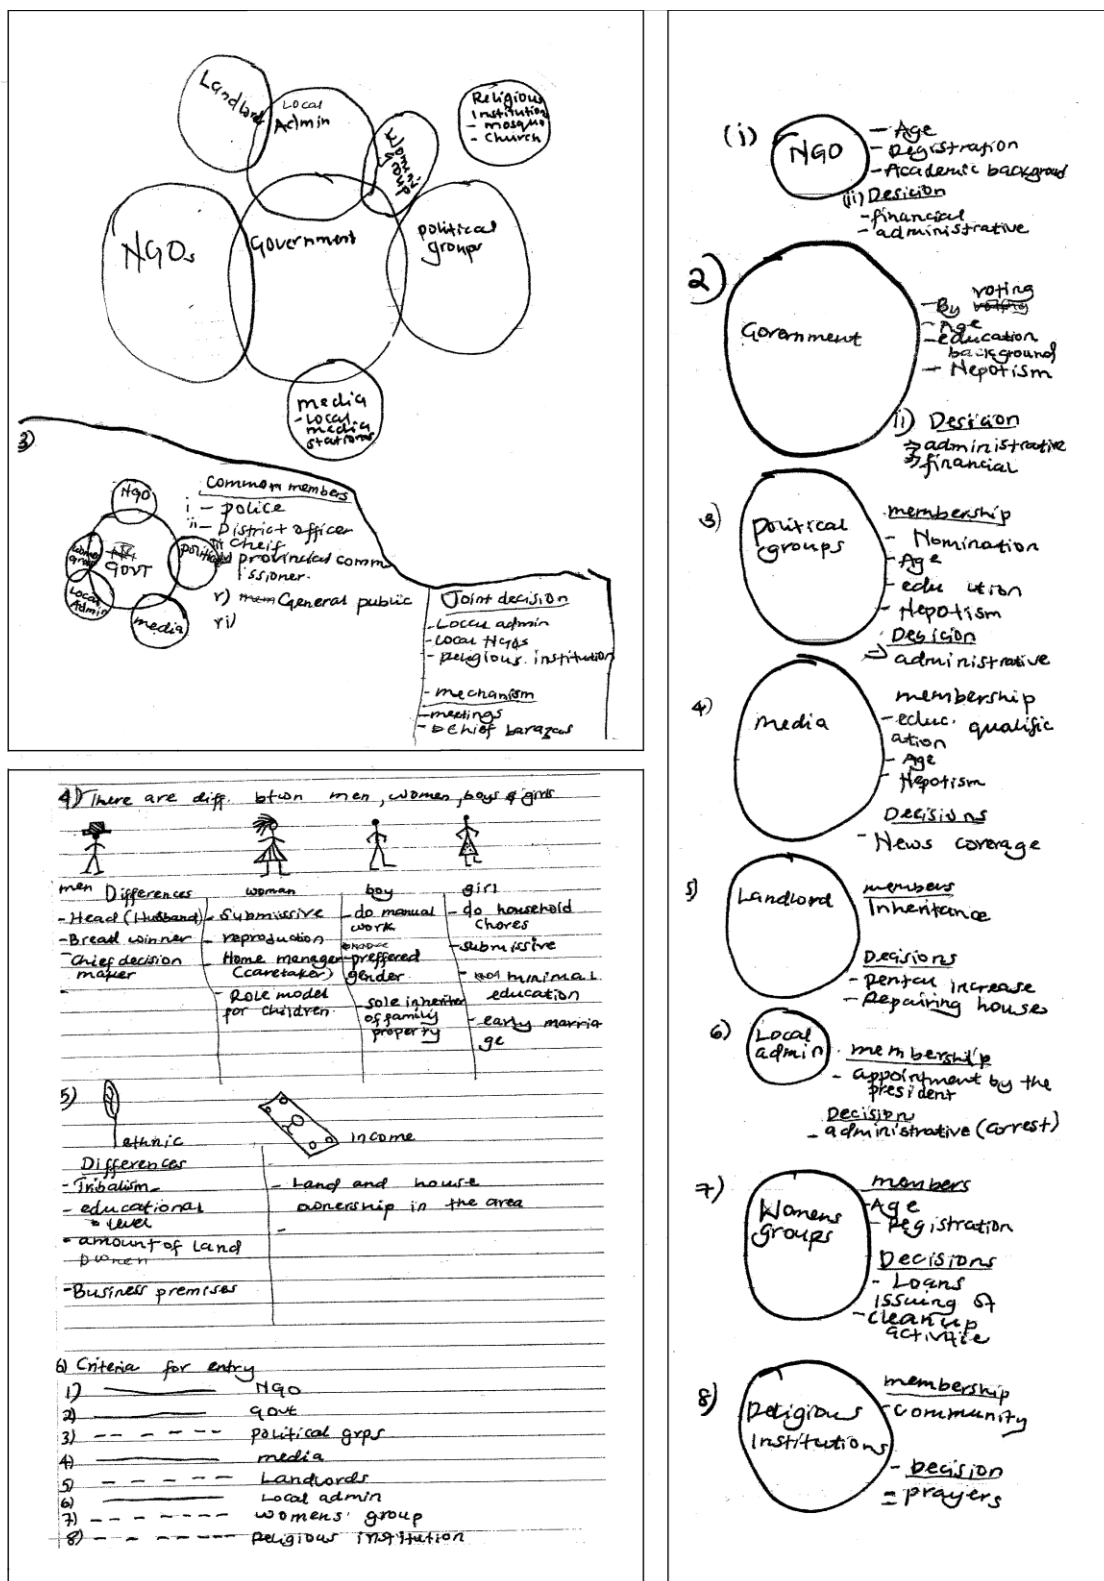 Landlord
Local
Admin
Women's
group
Religious
institution
- mosque
- church
NGOs
Government
political
groups
media
- Local
media
stations
3)
NGO
women
group
GOVT
political
Local
Admin
media
Common members
i - police
ii - District officer
iii Cheif
provincial comm
issioner.
v) General public
vi)
Joint decision
- Local admin
- Local NGOs
- Religious institution
- mechanism
- meetings
- Chief barazas
4) There are diff. btwn men, women, boys & girls
men Differences
- Head (Husband)
- Bread winner
- Chief decision
maker
-
woman
- Submissive
- reproduction
- Home manager
(caretaker)
- Role model
for children
boy
- do manual
work
- preffered
gender
- sole inheriter
of family
property
girl
- do household
chores
- submissive
- minimal
education
- early marria
ge
5)
ethnic
Differences
- Tribalism
- educational
level
- amount of land
owned
- Business premises
income
- Land and house
ownership in the area
-
6) Criteria for entry
1) NGO
2) govt
3) political grps
4) media
5) Landlords
6) Local admin
7) womens' group
8) Religious institution
(i) NGO
- Age
- Registration
- Academic backgroud
(ii) Desicion
- financial
- administrative
2) Government
- By voting
- Age
- education
background
- Nepotism
ii) Desicion
→ administrative
→ financial
3) political
groups
membership
- Nomination
- Age
- edu ution
- Nepotism
Desicion
→ administrative
4) media
membership
- educ. qualific
ation
- Age
- Nepotism
Decisions
- News coverage
5) Landlord
members
Inheritance
Decisions
- Rental increase
- Repairing houses
6) Local
admin
membership
- appointment by the
president
Decision
- administrative (arrest)
7) Womens
groups
members
- Age
- Registration
Decisions
- Loans
issuing of
- clean up
8) Religious
Institutions
membership
- community
- Decision
= prayers